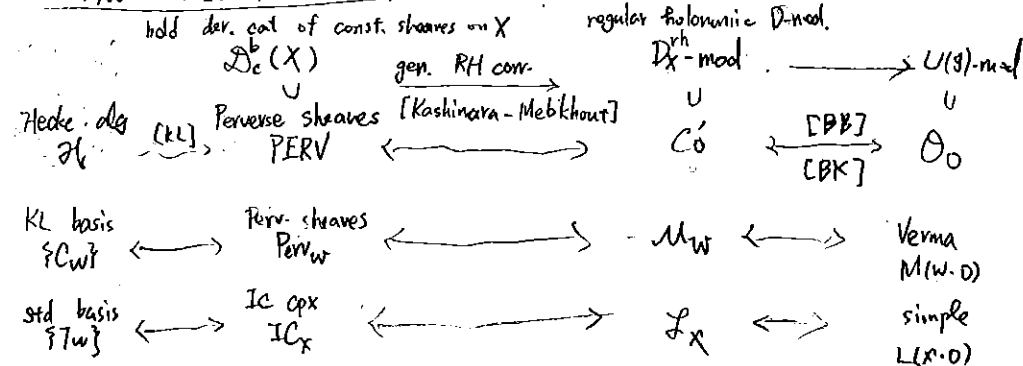 bdd der. cat of const. sheaves on X
regular holonomic D-mod.
D_c^b(X) gen. RH corr. D_X^rh-mod U(g)-mod
∪ ∪ ∪
Hecke alg [KL] Perverse sheaves [Kashiwara-Mebkhout] [BB]
H PERV C_0 [BK] O_0
KL basis Perv. sheaves
{C_w} Perv_w M_w Verma M(w·0)
std basis IC cpx
{T_w} IC_x L_x simple L(x·0)